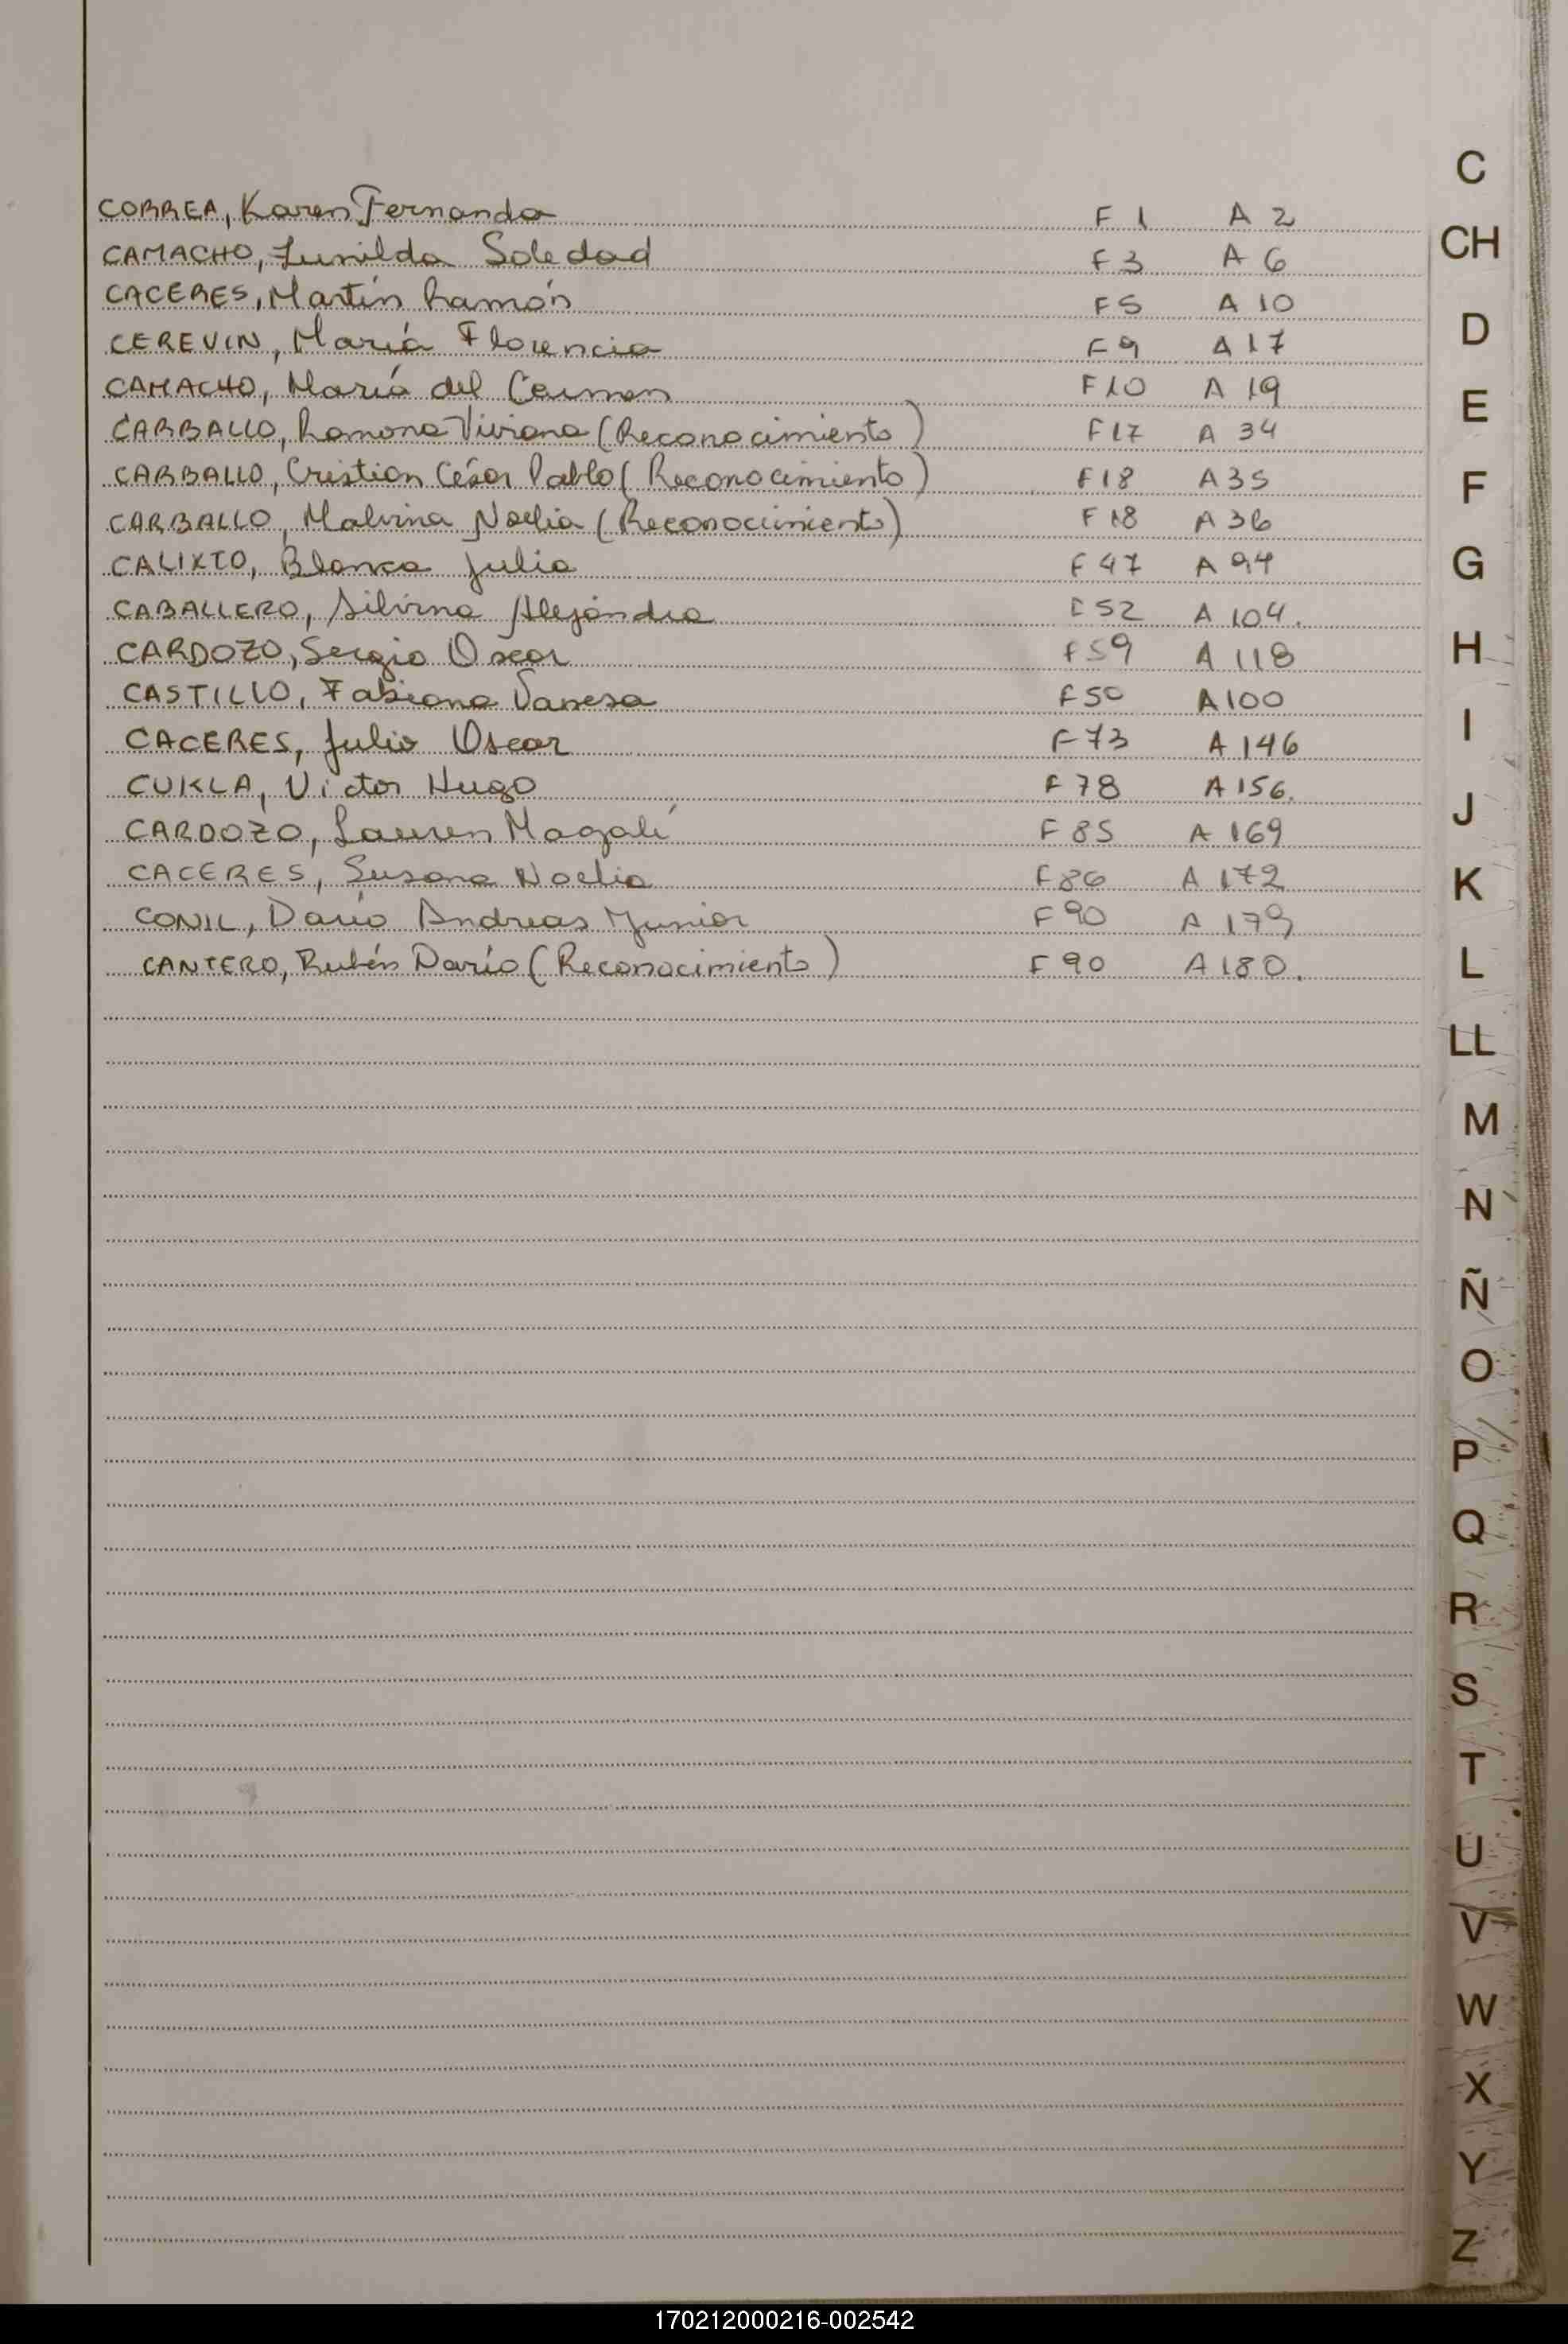 CORREA, Karen Fernanda F 1 A 2
CAMACHO, Lunilda Soledad F 3 A 6
CACERES, Martín Ramón F 5 A 10
CEREVIN, María Florencia F 9 A 17
CAMACHO, María del Carmen F 10 A 19
CARBALLO, Ramona Viviana (Reconocimiento) F 17 A 34
CARBALLO, Cristian César Pablo (Reconocimiento) F 18 A 35
CARBALLO, Malvina Noelia (Reconocimiento) F 18 A 36
CALIXTO, Blanca Julia F 47 A 94
CABALLERO, Silvina Alejandra F 52 A 104.
CARDOZO, Sergio Oscar F 59 A 118
CASTILLO, Fabiana Vanesa F 50 A 100
CACERES, Julio Oscar F 73 A 146
CUKLA, Victor Hugo F 78 A 156.
CARDOZO, Lauren Magalí F 85 A 169
CACERES, Susana Noelia F 86 A 172
CONIL, Darío Andreas Junior F 90 A 179
CANTERO, Rubén Darío (Reconocimiento) F 90 A 180.
C
CH
D
E
F
G
H
I
J
K
L
LL
M
N
Ñ
O
P
Q
R
S
T
U
V
W
X
Y
Z
170212000216-002542